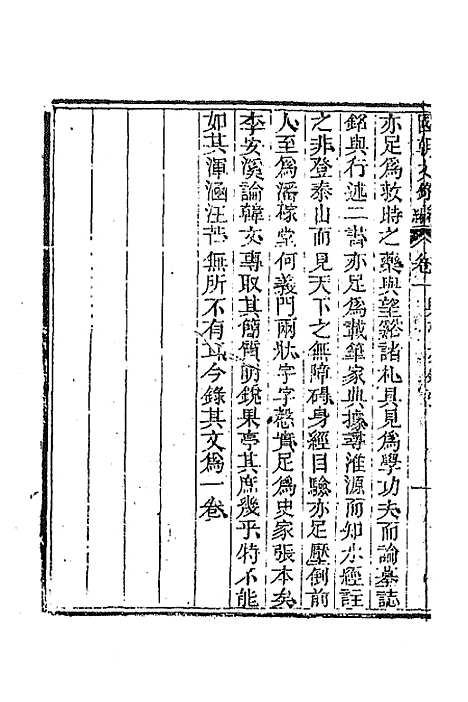 國朝文錄續編 卷一
亦足爲救時之藥與望谿諸札具見爲學功夫而論墓誌
銘與行述二書亦足爲載筆家典據尋淮源而知水經註
之非登泰山而見天下之無障碍身經目驗亦足壓倒前
人至爲潘稼堂何義門兩狀字字慤實足爲史家張本矣
李安溪論韓文專取其簡質明銳果亭其庶幾乎特不能
如其渾涵汪茫無所不有耳今錄其文爲一卷